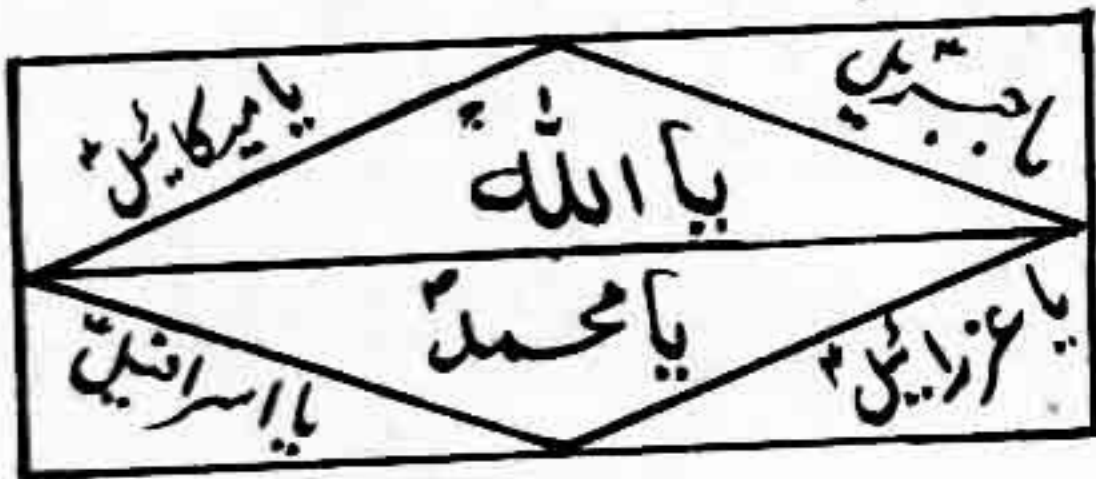 یا جبریلؑ
یا میکائیلؑ
یا اللہ
یا محمدؐ
یا عزرائیلؑ
یا اسرافیلؑ